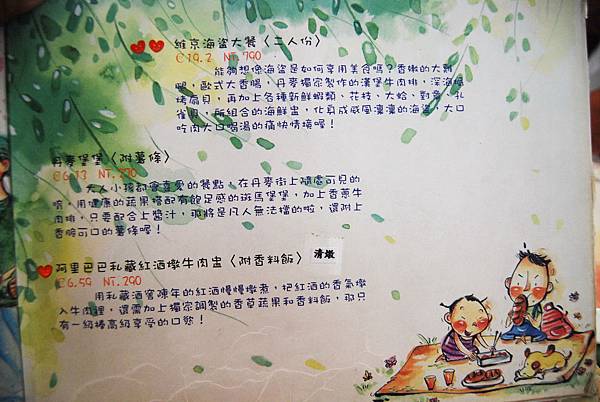 維京海盜大餐〈二人份〉
C19.2 NT.790
能夠想像海盜是如何享用美食嗎？香嫩的大雞
腿，歐式大香腸，丹麥獨家製作的漢堡牛肉排，深海
烤扇貝，再加上各種新鮮蝦類、花枝、大蛤、對、孔
雀貝，所組合的海鮮盅，化身成威風凜凜的海盜，大口
吃肉大口喝湯的痛快情境喔！
丹麥堡堡〈附薯條〉
C6.13 NT.230
大人小孩都會喜愛的餐點，在丹麥街上隨處可見的
唷，用健康的蔬果搭配有飽足感的斑馬堡堡，加上香蔥牛
肉排，只要配合上醬汁，那將是凡人無法擋的啦，還附上
香脆可口的薯條喔！
阿里巴巴私藏紅酒燉牛肉盅〈附香料飯〉 清燉
C6.59 NT.290
用私藏酒窖陳年的紅酒慢慢燉煮，把紅酒的香氣燉
入牛肉裡，還需加上獨家調製的香草蔬果和香料飯，那只
有一級棒高級享受的口慾！